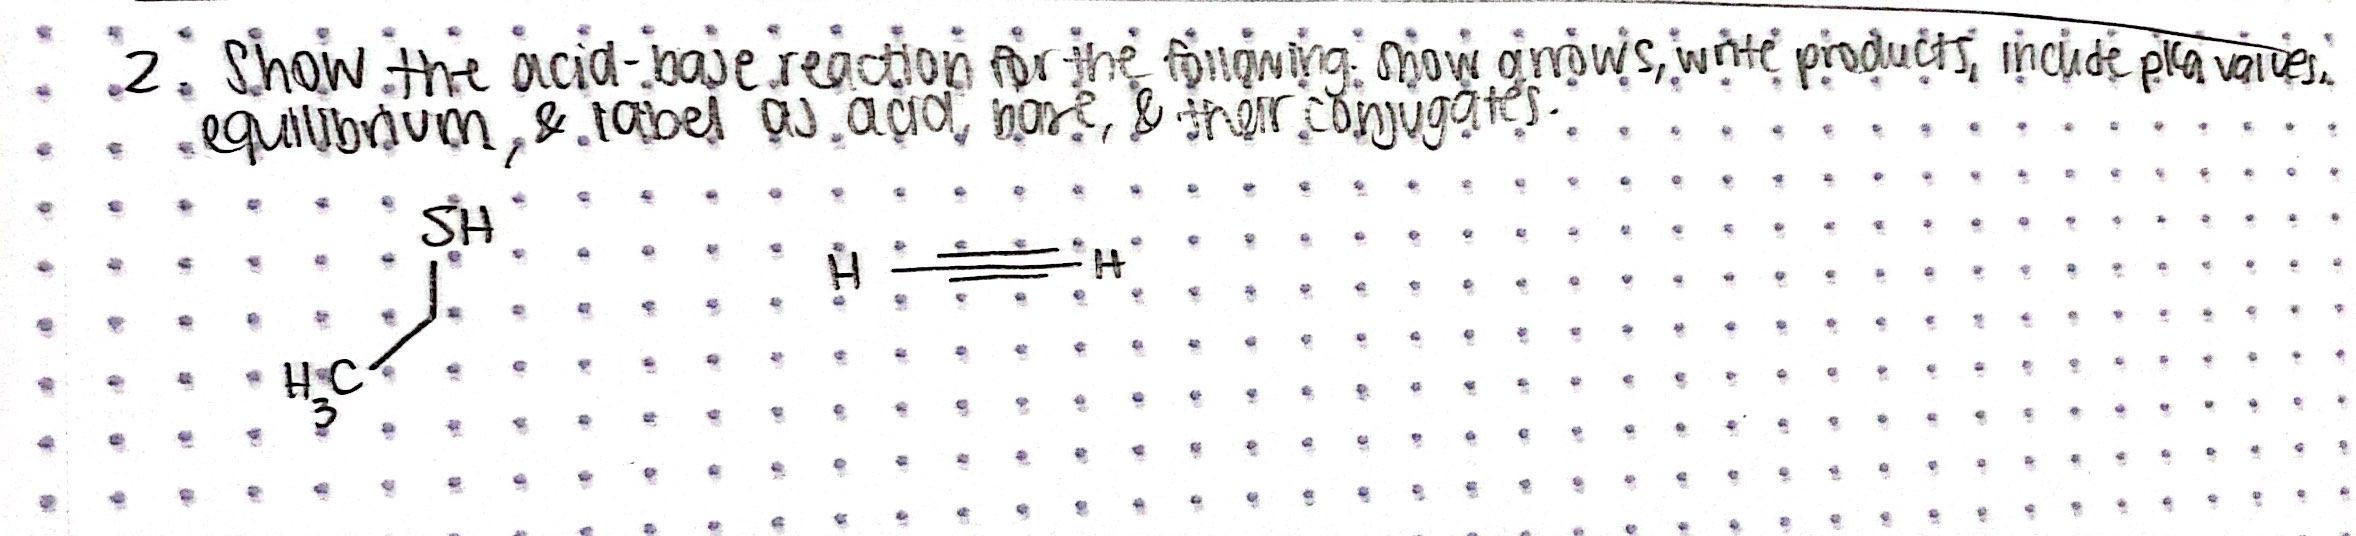 2. Show the acid-base reaction for the following. Show arrows, write products, include pka values.
equilibrium, & label as acid, base, & their conjugates.
SH
H H
H3C